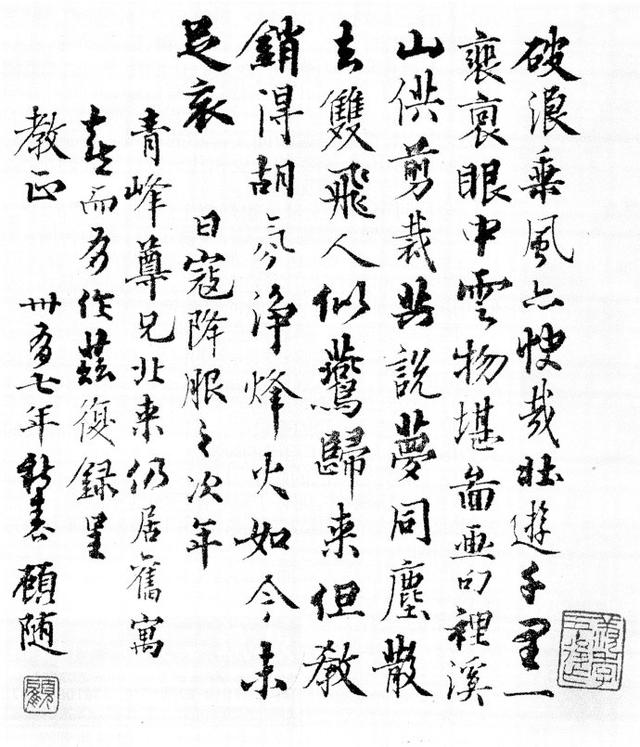 破浪乘風亦快哉壯遊千里一
眼中雲物堪圖畫句裡溪
山供剪裁共說夢同塵散
去雙飛人似燕歸來但教
銷得胡氛淨烽火如今未
足哀 日寇降服之次年
青峰尊兄北来仍居舊寓
喜而有作茲復録呈
教正 卅有七年新春 顧随
顧